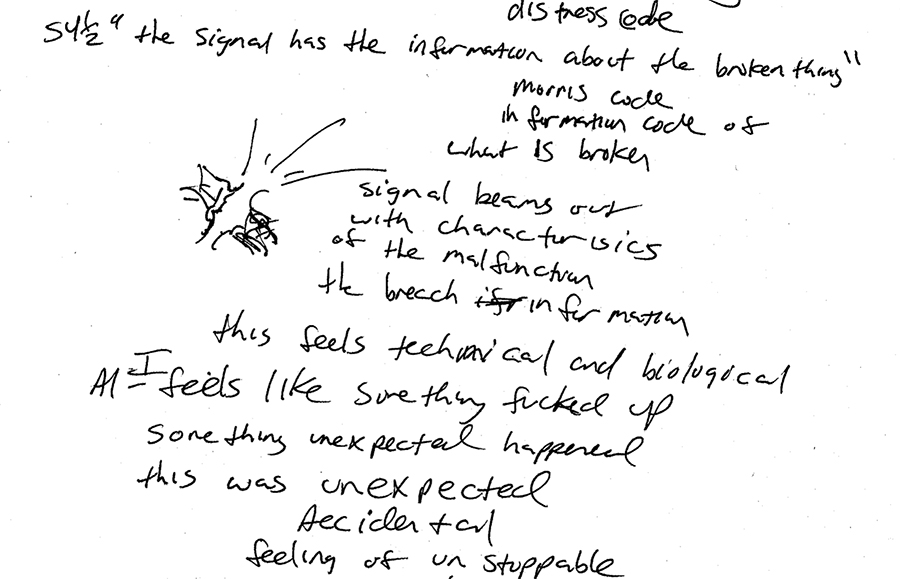 distress code
S4½ "the signal has the information about the broken thing"
morris code
information code of
what IS broken
signal beams out
with characterisics
of the malfunction
the breach information
this feels technical and biological
AI = I feels like something fucked up
something unexpected happened
this was unexpected
Accidental
feeling of unstoppable